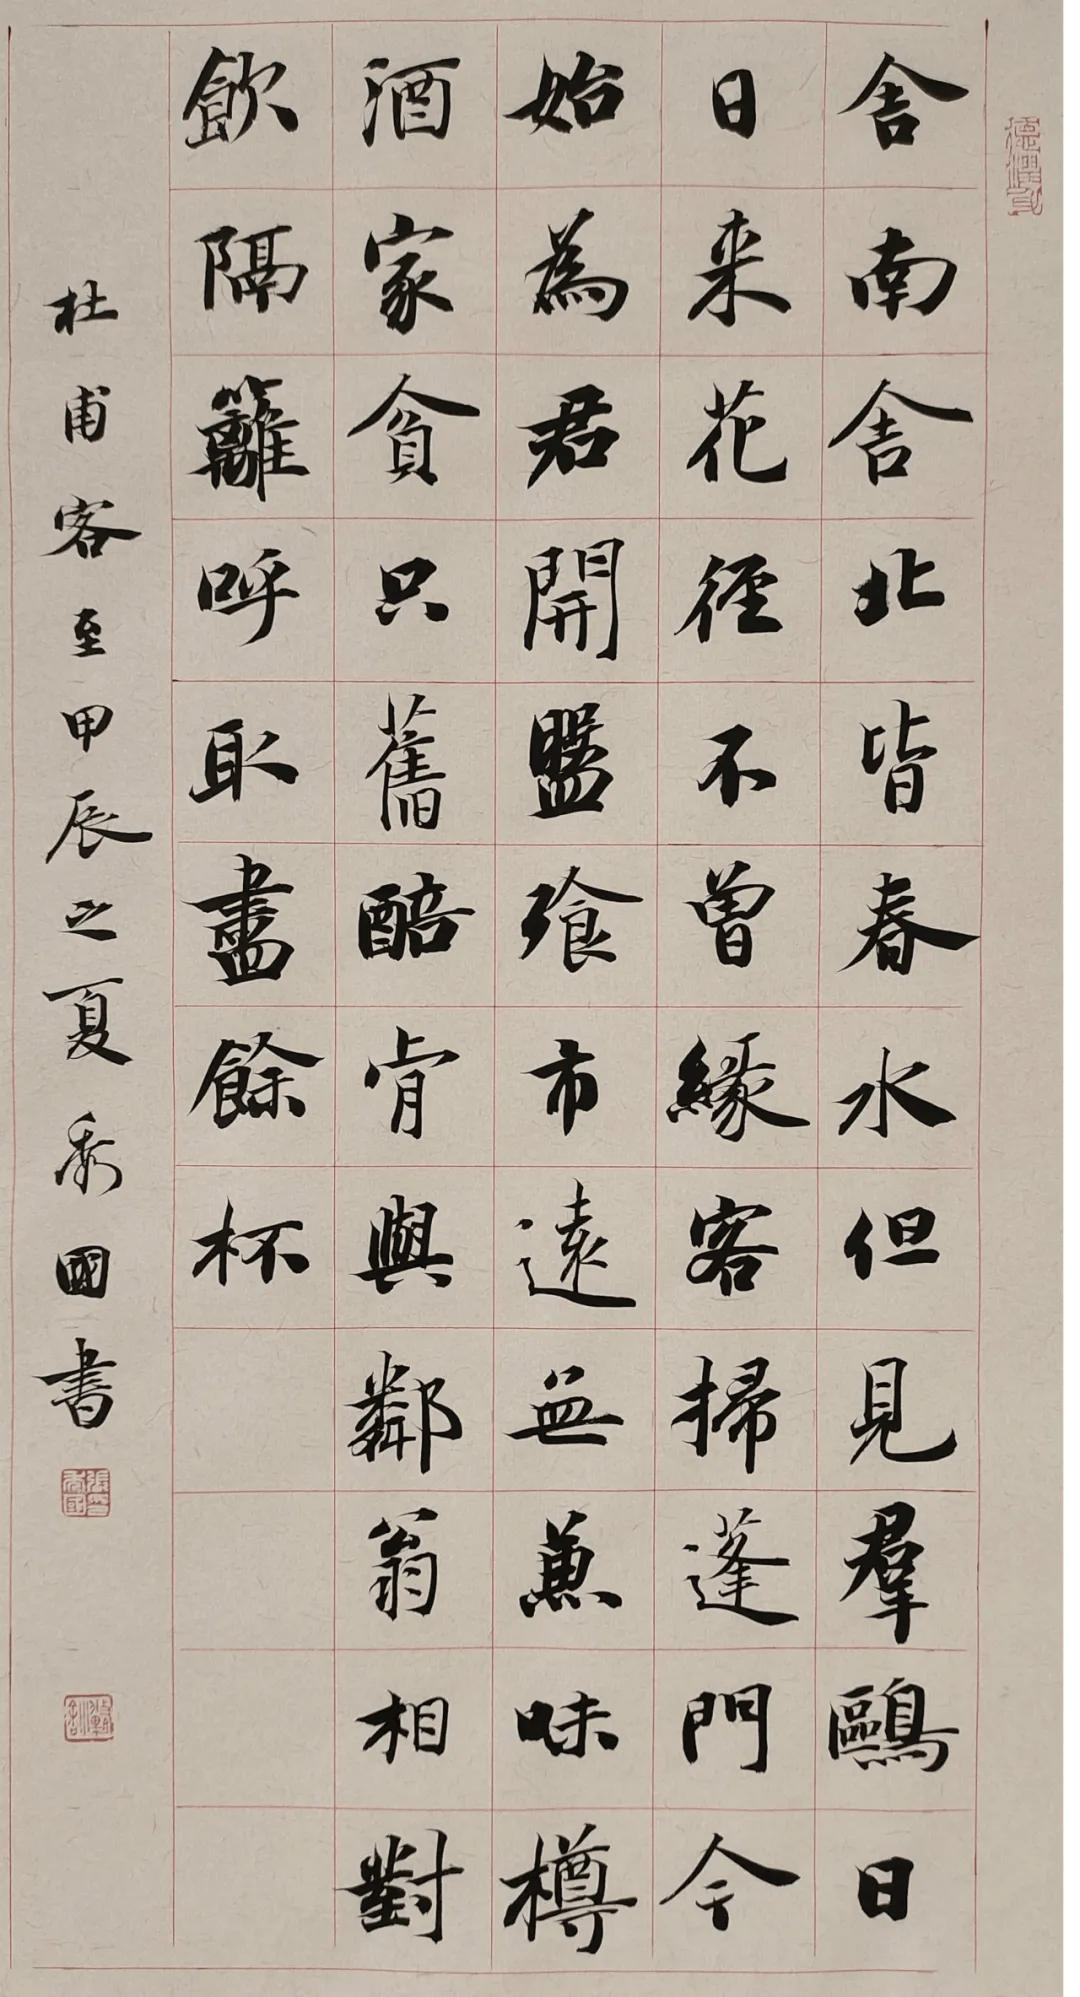 舍南舍北皆春水但見羣鷗日
日来花徑不曾緣客掃蓬門今
始為君開盤飱市遠無兼味樽
酒家貧只舊醅肯與鄰翁相對
飲隔籬呼取盡餘杯
杜甫客至甲辰之夏秀國書